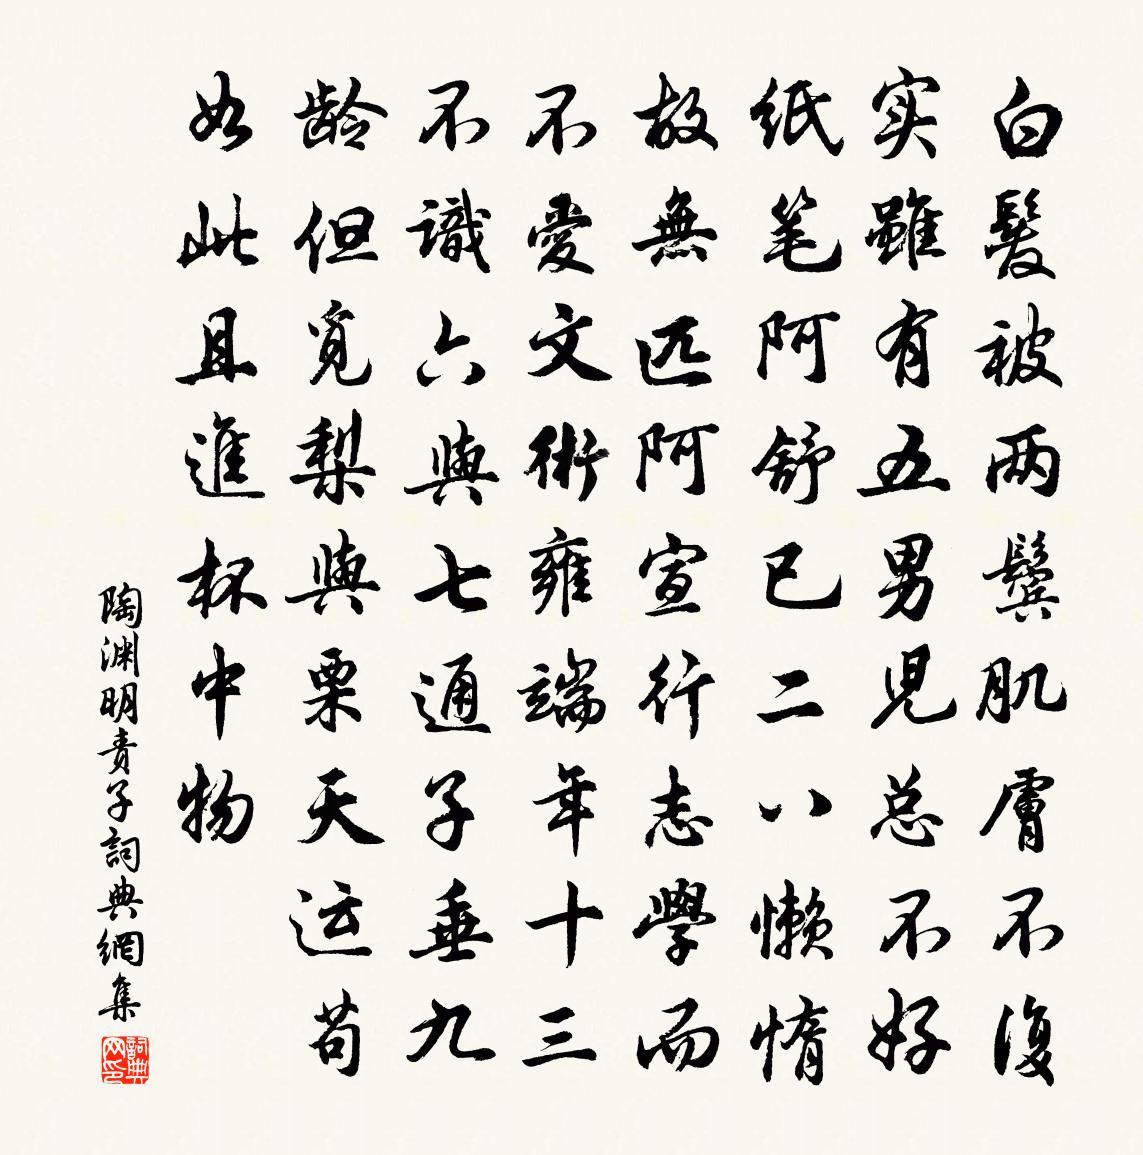 白髮被两鬓肌膚不復
实雖有五男児总不好
纸笔阿舒已二八懒惰
故無匹阿宣行志學而
不愛文術雍端年十三
不識六與七通子垂九
龄但觅梨與栗天运苟
如此且進杯中物
陶渊明責子詞典網集
詞典网印